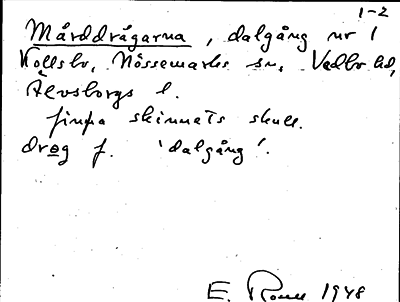 1-2
Mårddrågarna, dalgång nr 1
Kollsbr, Nössemarks sn, Vedbo hd,
Älvsborgs l.
finpa skinnats skull.
dråg f. 'dalgång'.
E. Rome 1948